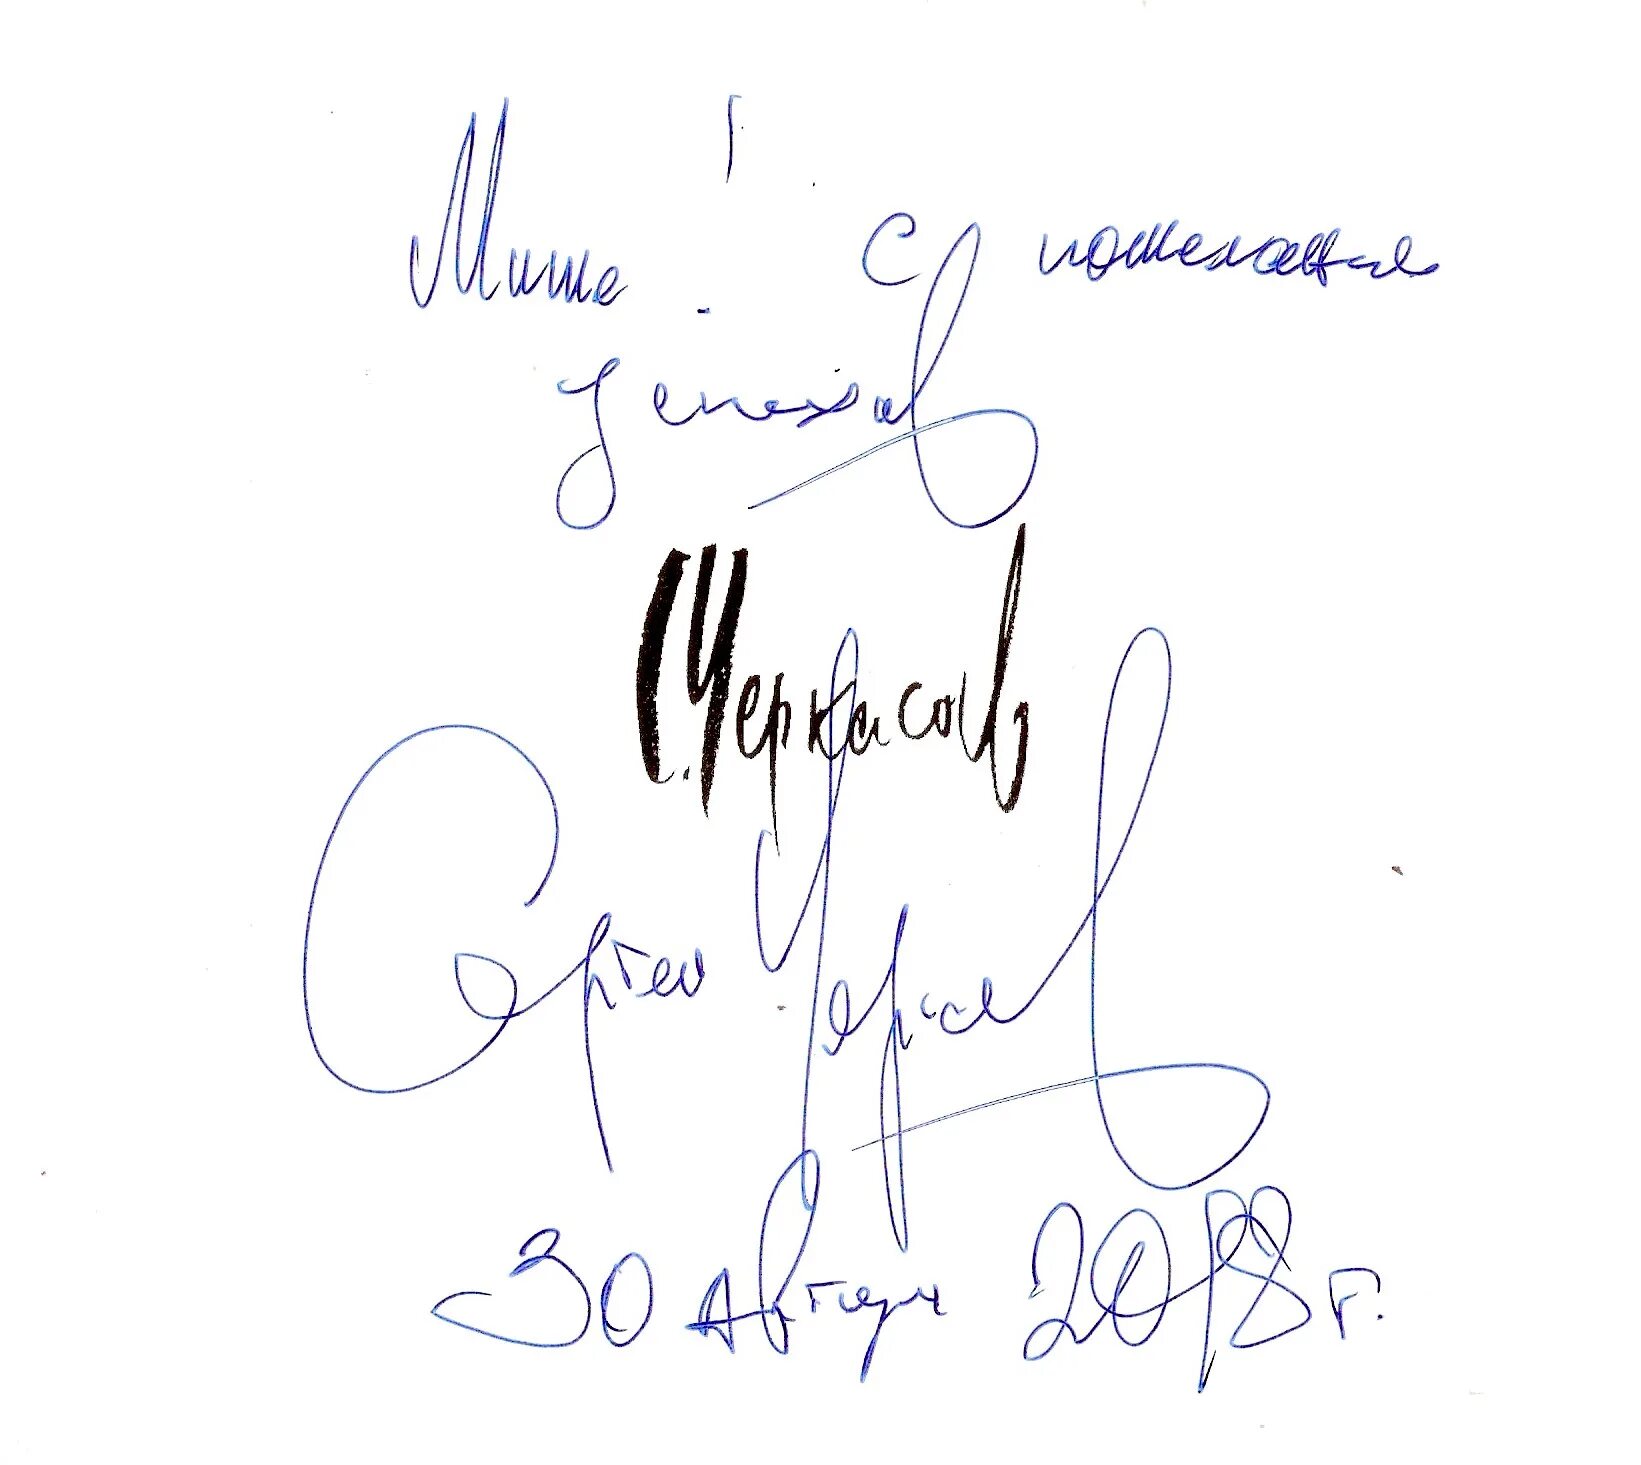 Мише! С пожеланием
успехов
С. Черкасов
Сергей Черкасов
30 августа 2018 г.